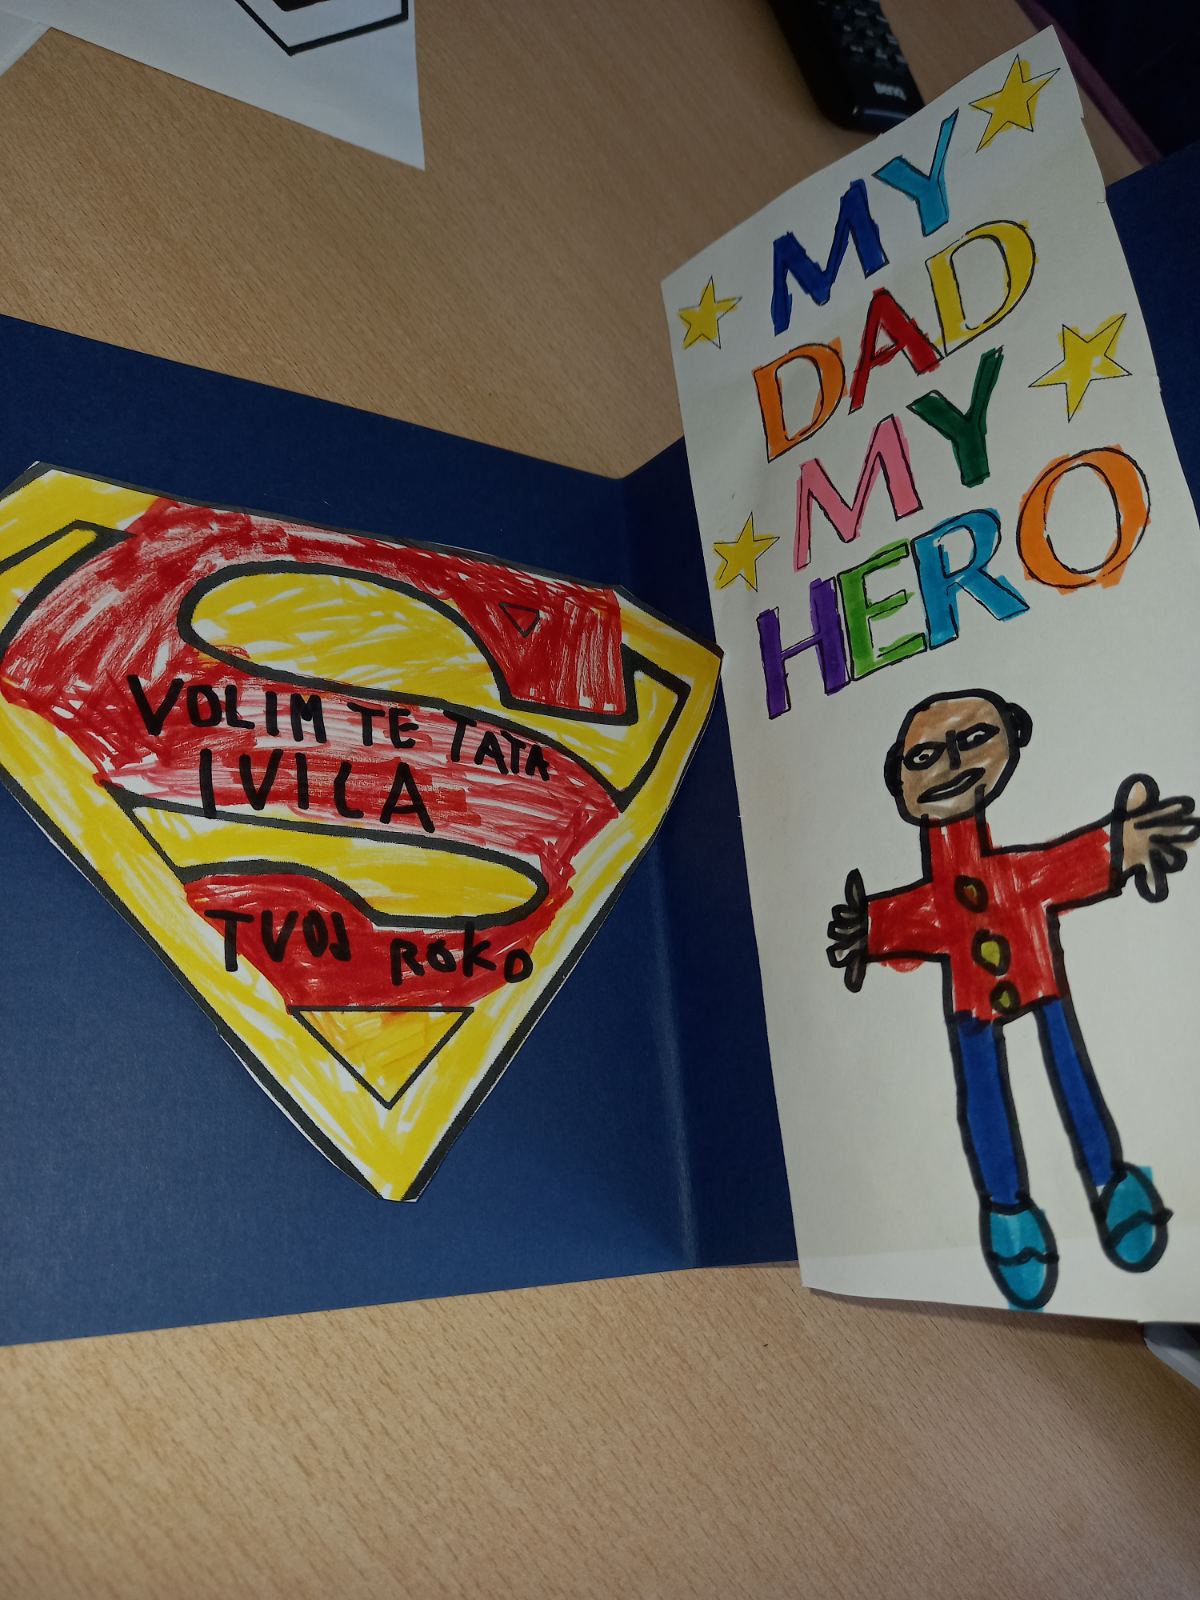 VOLIM TE TATA
IVICA
TVOJ ROKO
MY
DAD
MY
HERO